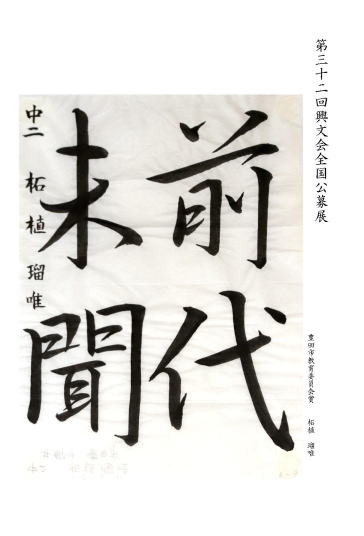 第三十二回興文会全国公募展
豊田市教育委員会賞　柘植　瑠唯
前代
未聞
中二　柘植瑠唯